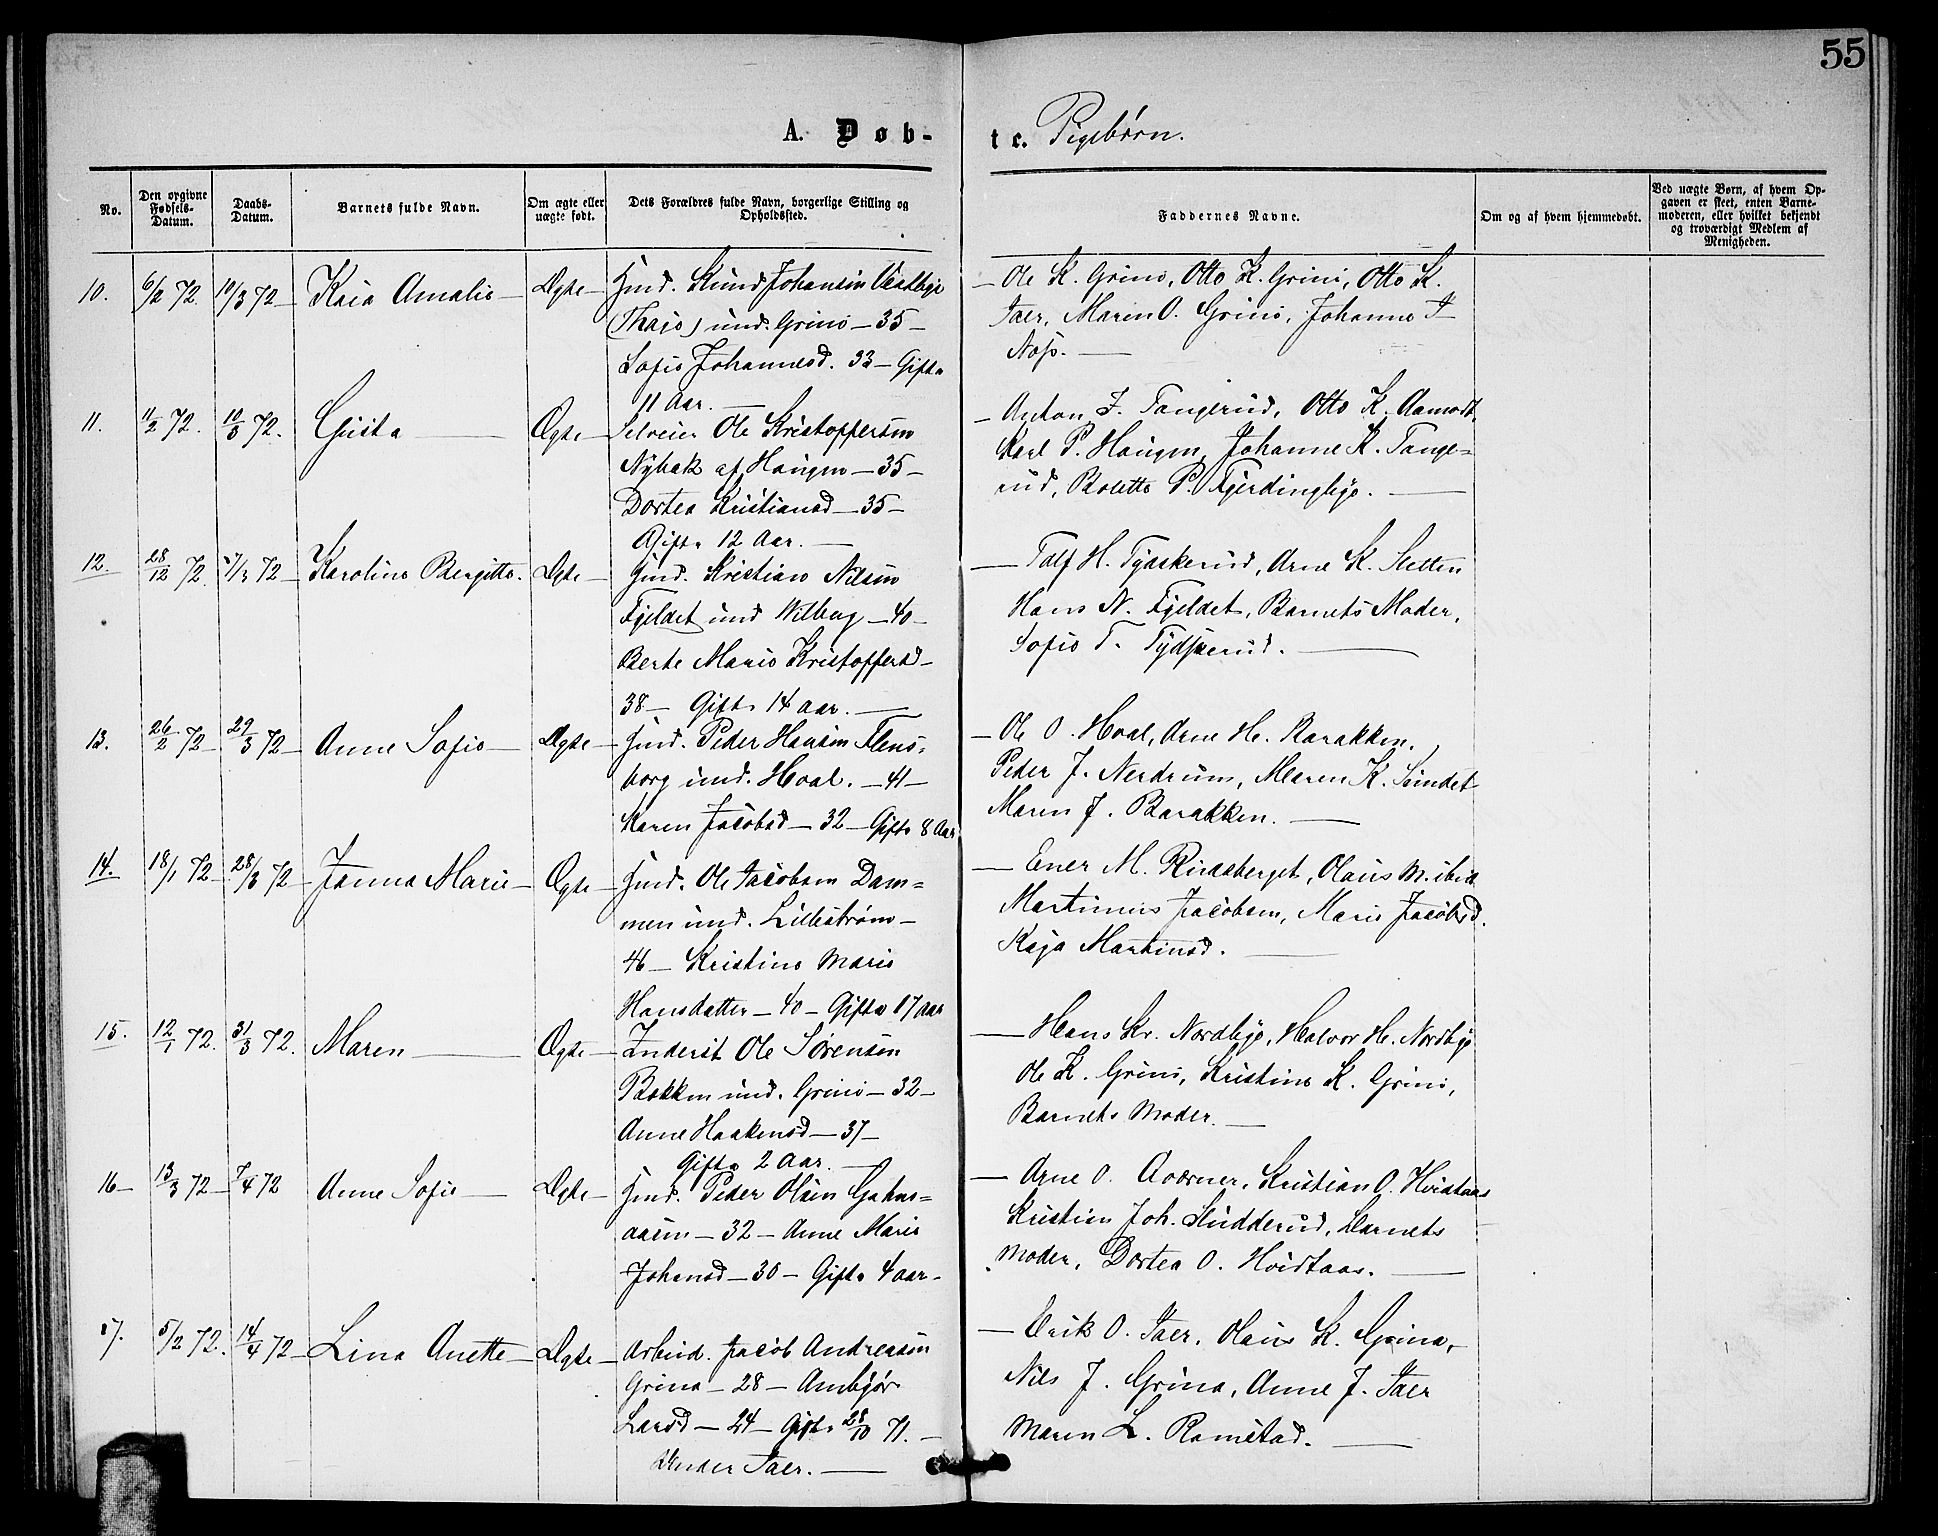 55
A. Døb-
te. Pigebørn.
No.
Den opgivne Fødsels-Datum.
Daabs-Datum.
Barnets fulde Navn.
Om ægte eller uægte født.
Dets Forældres fulde Navn, borgerlige Stilling og Opholdssted.
Faddernes Navne.
Om og af hvem hjemmedøbt.
Ved uægte Børn, af hvem Opgaven er skeet, enten Barnemoderen, eller hvilket bekjendt og troværdigt Medlem af Menigheden.
10. 6/2 72. 10/3 72 Kaia Amalie Ægte Hmd. Knud Johansen Vestbye
(Thajs) und. Grini - 35 -
Sofie Johannesd. 33 - Gifte
11 Aar.
Ole K. Grini, Otto K. Grini, Otto K.
Taer, Maren O. Grini, Johanne
11. 11/2 72. 10/3 72. Gusta Ægte Selveier Ole Kristoffersen
Nybak af Haugen - 35 -
Dortea Kristiansd - 35 -
Gifte 12 Aar.
Anton J. Tangerud, Otto K. Aamodt,
Karl P. Haugen, Johanne K. Tange-
rud, Bolette P. Fjerdingbye.
12. 28/12 72. 17/3 72 Karoline Bergitte. Ægte Hmd. Kristian Nilsen
Fjeldet und Wilberg - 40 -
Berte Marie Kristoffersd -
38 - Gifte 14 aar.
H. Tydskerud, Arne K. Sletten
Hans N. Fjeldet, Barnets Moder,
Sofie T. Tydskerud.
13. 26/2 72 29/3 72 Anne Sofie Ægte Hmd. Peder Hansen Flens-
borg und. Hval. - 41 -
Karen Jacobsd - 32 - Gifte 8 Aar
Ole O. Hval, Arne H. Barakken,
Peder J. Nerdrum, Maren K. Sundet
Maren J. Barakken.
14. 18/1 72 28/3 72 Janna Marie Ægte Hmd. Ole Jacobsen Dam-
men und. Lillestrøm -
46 - Kristine Marie
Hansdatter - 40 - Gifte 17 aar
Ener M. Rudsberget, Olaus M. ibid
Martinius Jacobsen, Marie Jacobsd.
Kaja Martinsd.
15. 12/1 72. 31/3 72. Maren Ægte Inderst Ole Sørensen
Bakken und. Grini - 32 -
Anne Haakensd - 37 -
Gifte 2 aar.
Hans Kr. Nordbye, Halvor H. Nordbye
Ole K. Grini, Kristine K. Grini,
Barnets Moder.
16 - 13/3 72 7/4 72 Anne Sofie Ægte Hmd. Peder Olsen
- 32 - Anne Marie
Johansd - 30 - Gifte 4 aar -
Arne O. Kristian O. Hvidtaas
Kristian Joh. Sludderud, Barnets
Moder, Dortea O. Hvidtaas.
17. 5/2 72. 14/4 72 Lina Anette Ægte Arbeid. Jacob Andreasen
Grina - 28 - Ambjør
Larsd - 24 - Gifte 28/10 71. -
Under Taer.
Erik O. Taer, Olaus K. Grina,
Nils J. Grina, Anne J. Taer
Maren L. Ramstad.